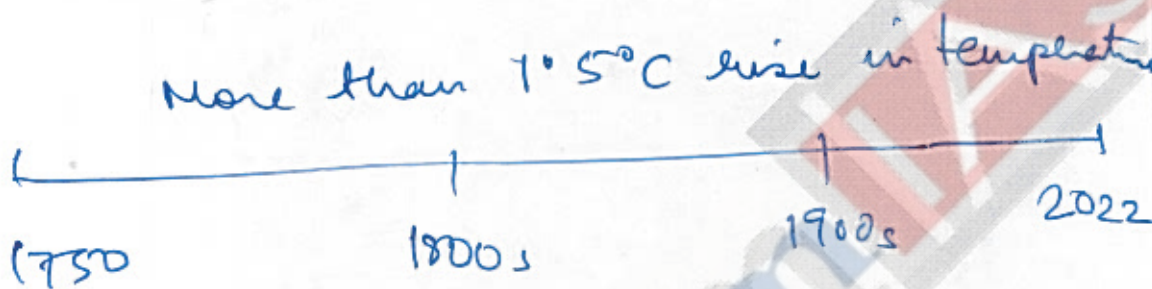 More than 1.5°C rise in temperatu
1750 1800s 1900s 2022